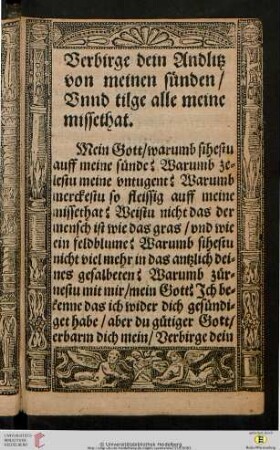 Verbirge dein Andlitz
von meinen sünden/
Vnnd tilge alle meine
missethat.
Mein Gott/warumb sihestu
auff meine sünde? Warumb ze-
lestu meine vntugent? Warumb
merckestu so fleissig auff meine
missethat? Weistu nicht das der
mensch ist wie das gras/vnd wie
ein feldblume? Warumb sihestu
nicht viel mehr in das antzlich dei-
nes gesalbeten? Warumb zür-
nestu mit mir/mein Gott? Ich be-
kenne das ich wider dich gesündi-
get habe/aber du gütiger Gott/
erbarm dich mein/Verbirge dein
© Universitätsbibliothek Heidelberg